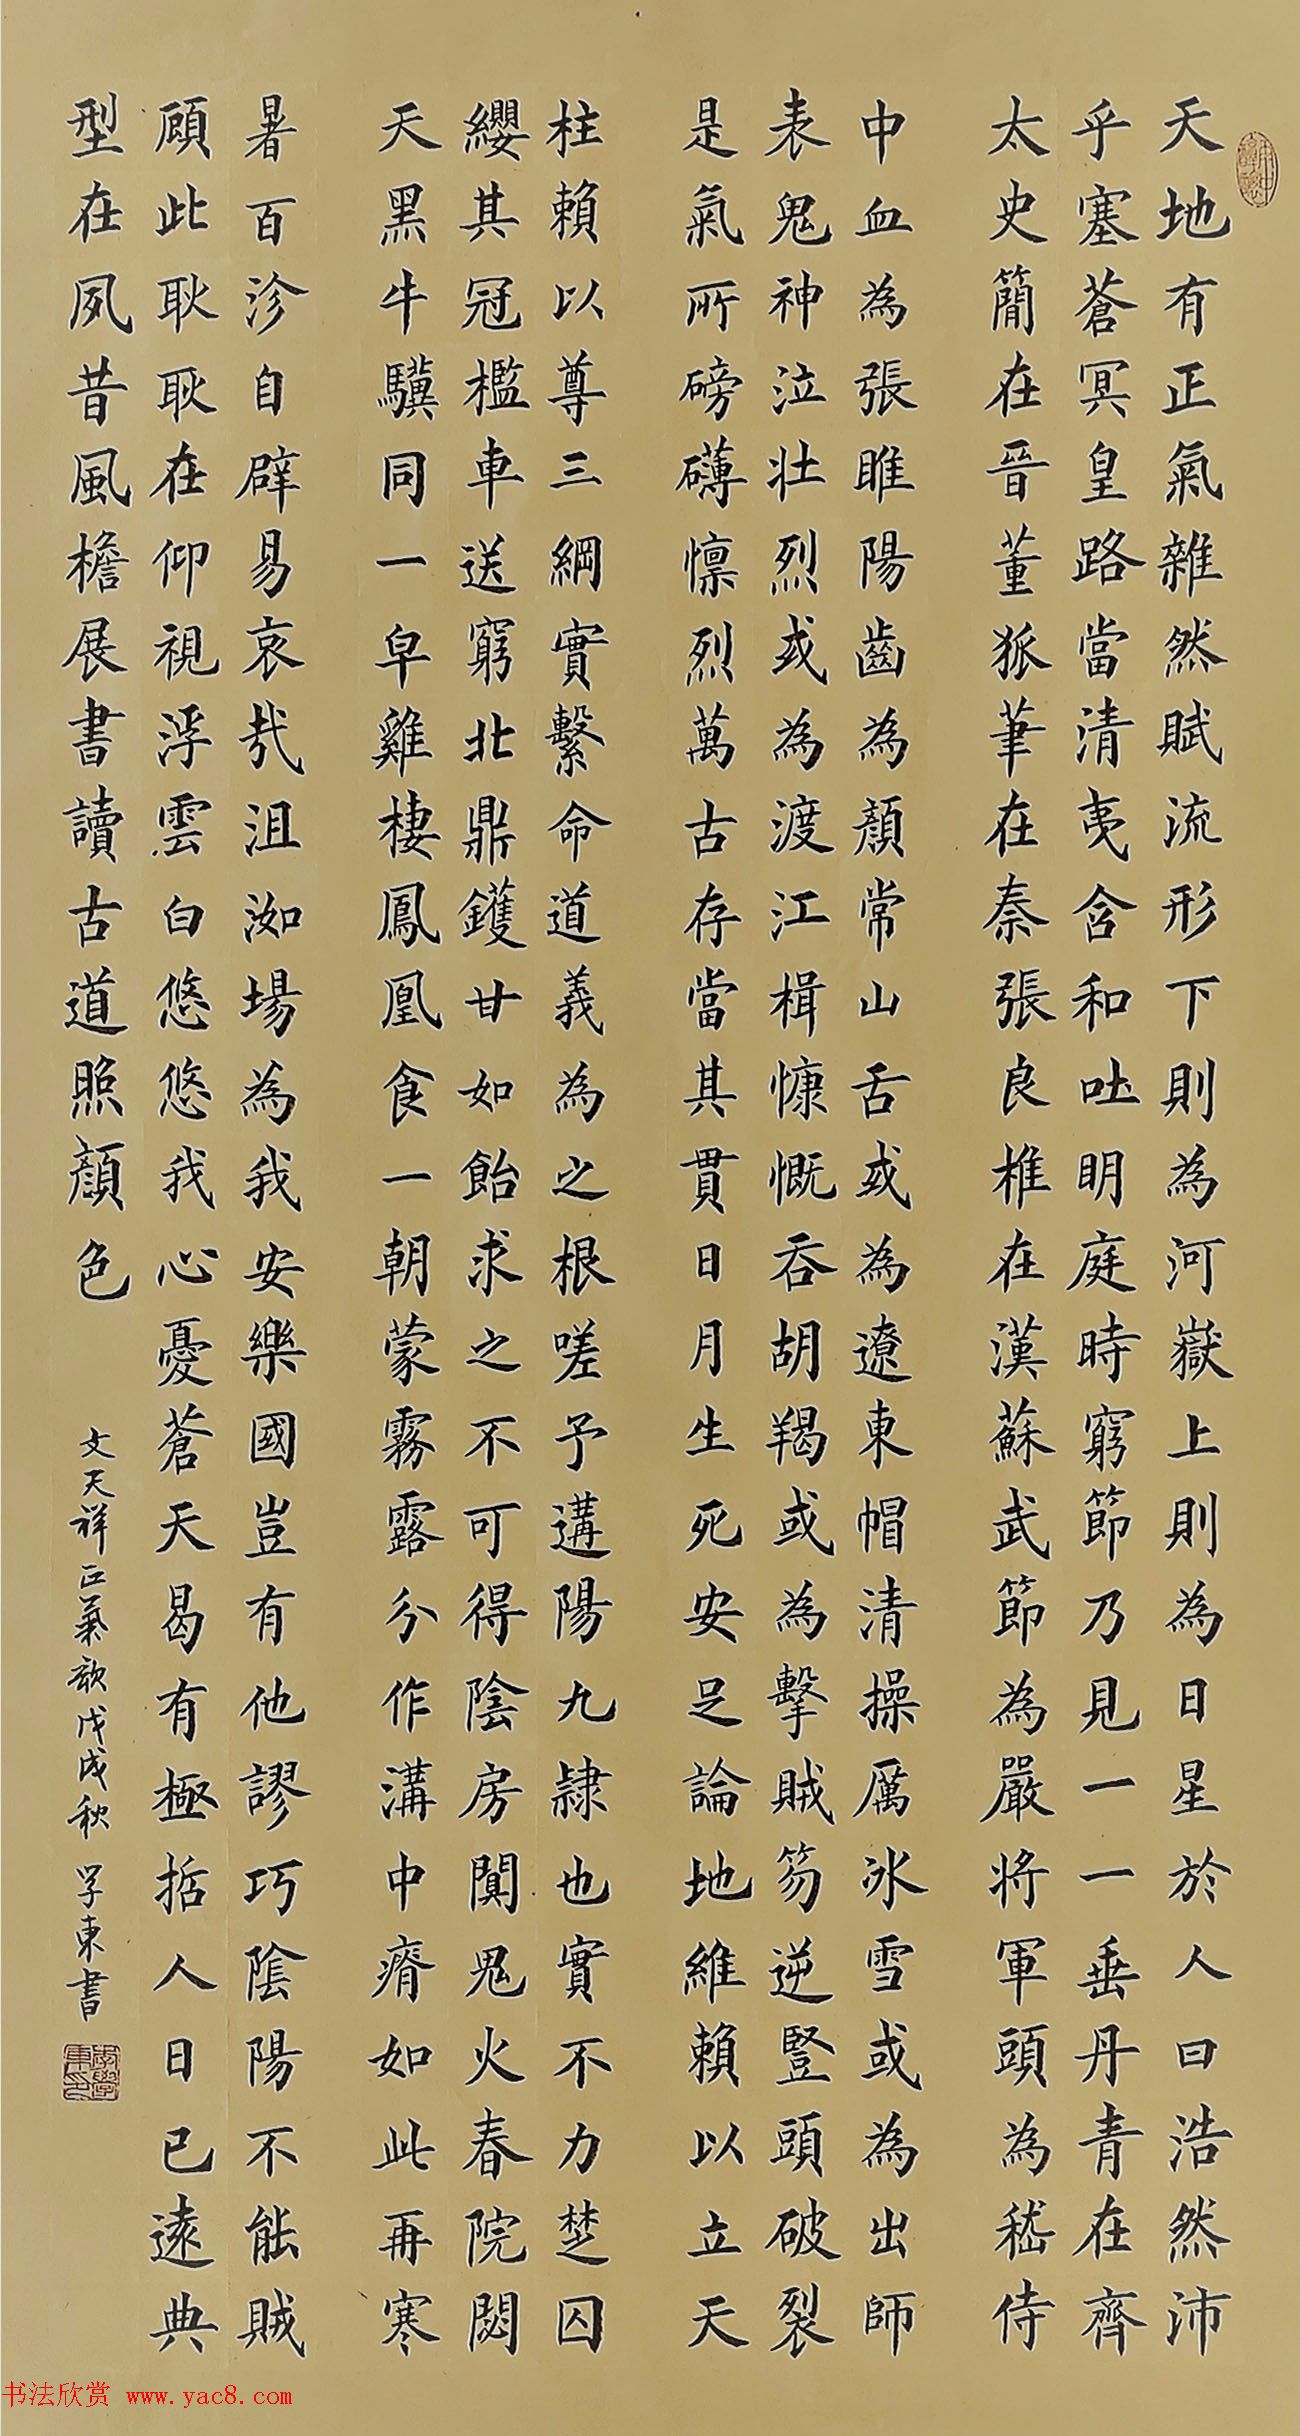 天地有正氣雜然賦流形下則為河嶽上則為日星於人曰浩然沛
乎塞蒼冥皇路當清夷含和吐明庭時窮節乃見一一垂丹青在齊
太史簡在晉董狐筆在秦張良椎在漢蘇武節為嚴將軍頭為嵇侍
中血為張睢陽齒為顏常山舌或為遼東帽清操厲冰雪或為出師
表鬼神泣壯烈或為渡江楫慷慨吞胡羯或為擊賊笏逆豎頭破裂
是氣所磅礴懍烈萬古存當其貫日月生死安足論地維賴以立天
柱賴以尊三綱實繫命道義為之根嗟予遘陽九隸也實不力楚囚
纓其冠檻車送窮北鼎鑊甘如飴求之不可得陰房闃鬼火春院閟
天黑牛驥同一皁雞棲鳳凰食一朝蒙霧露分作溝中瘠如此再寒
暑百沴自辟易哀哉沮洳場為我安樂國豈有他謬巧陰陽不能賊
顧此耿耿在仰視浮雲白悠悠我心憂蒼天曷有極哲人日已遠典
型在夙昔風檐展書讀古道照顏色
文天祥正氣歌戊戌秋 學東書
书法欣赏 www.yac8.com